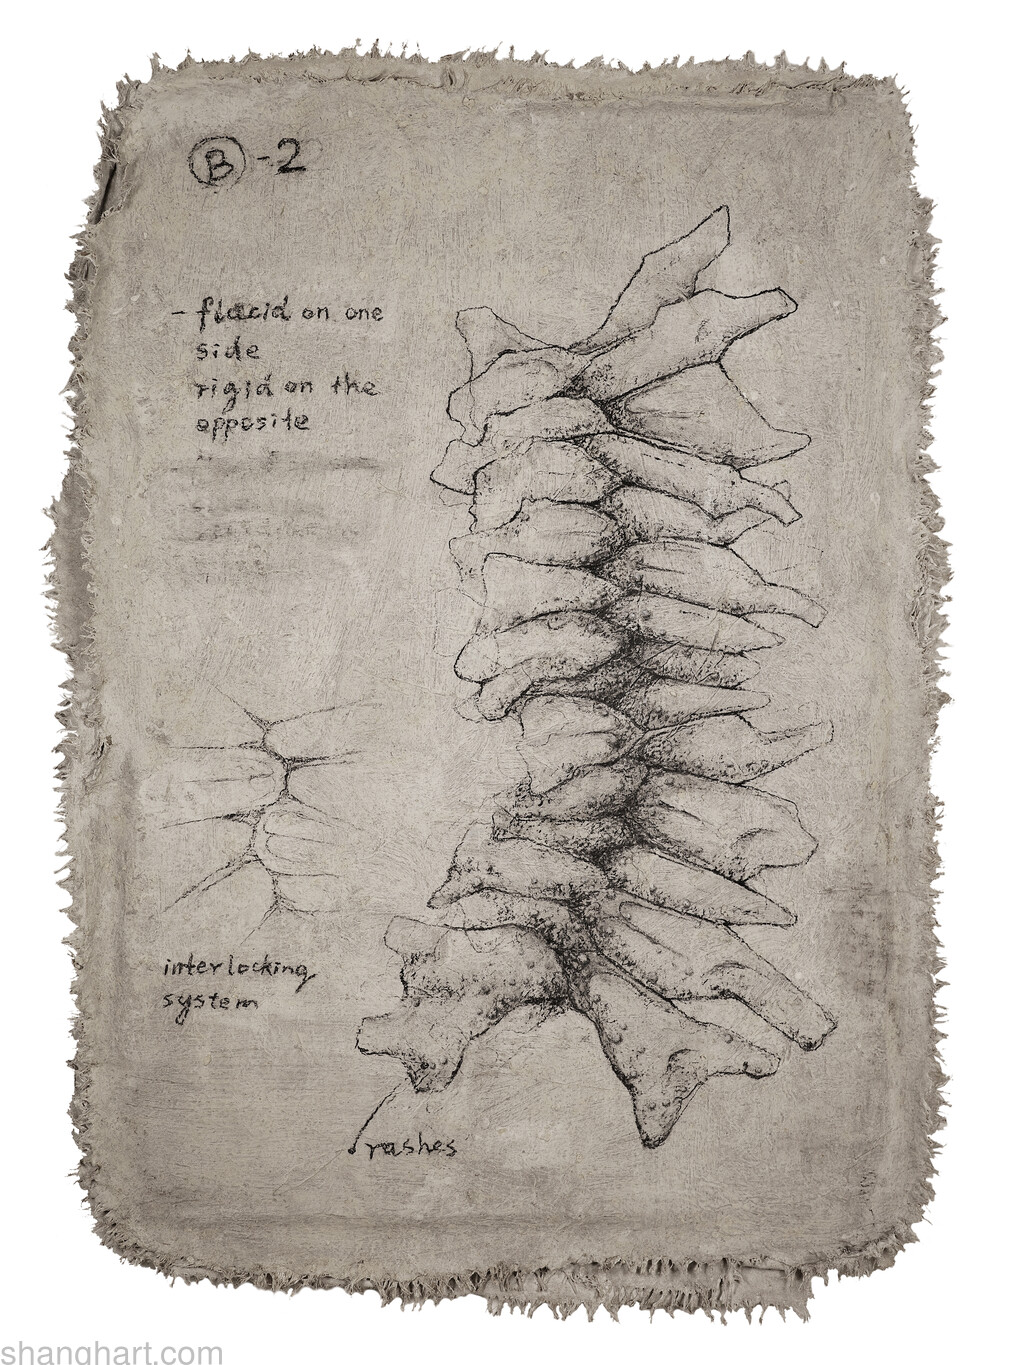 B - 2
- flacid on one
side
rigid on the
opposite
interlocking
system
rashes
shanghart.com